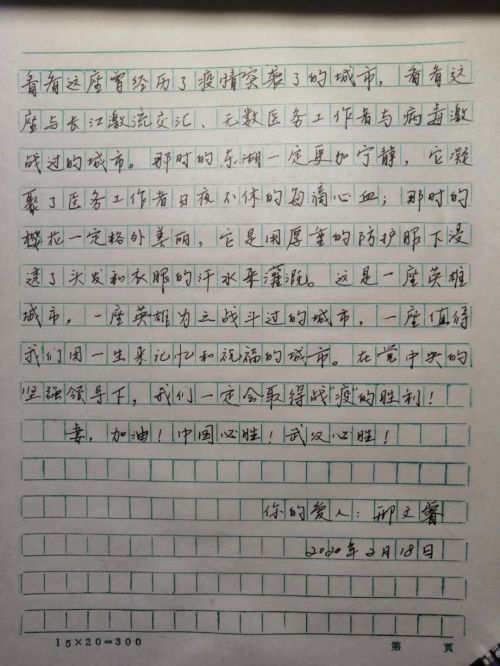 看看这座曾经历了疫情突袭了的城市，看看这
座与长江激流交汇、无数医务工作者与病毒激
战过的城市。那时的东湖一定更加宁静，它凝
聚了医务工作者日夜不休的每滴心血；那时的
樱花一定格外美丽，它是用厚重的防护服下浸
透了头发和衣服的汗水来灌溉。这是一座英雄
城市，一座英雄为之战斗过的城市，一座值得
我们用一生来记忆和祝福的城市。在党中央的
坚强领导下，我们一定会取得战"疫"的胜利！
妻，加油！中国必胜！武汉必胜！
你的爱人：邢文睿
2020年2月18日
15×20=300 第 页